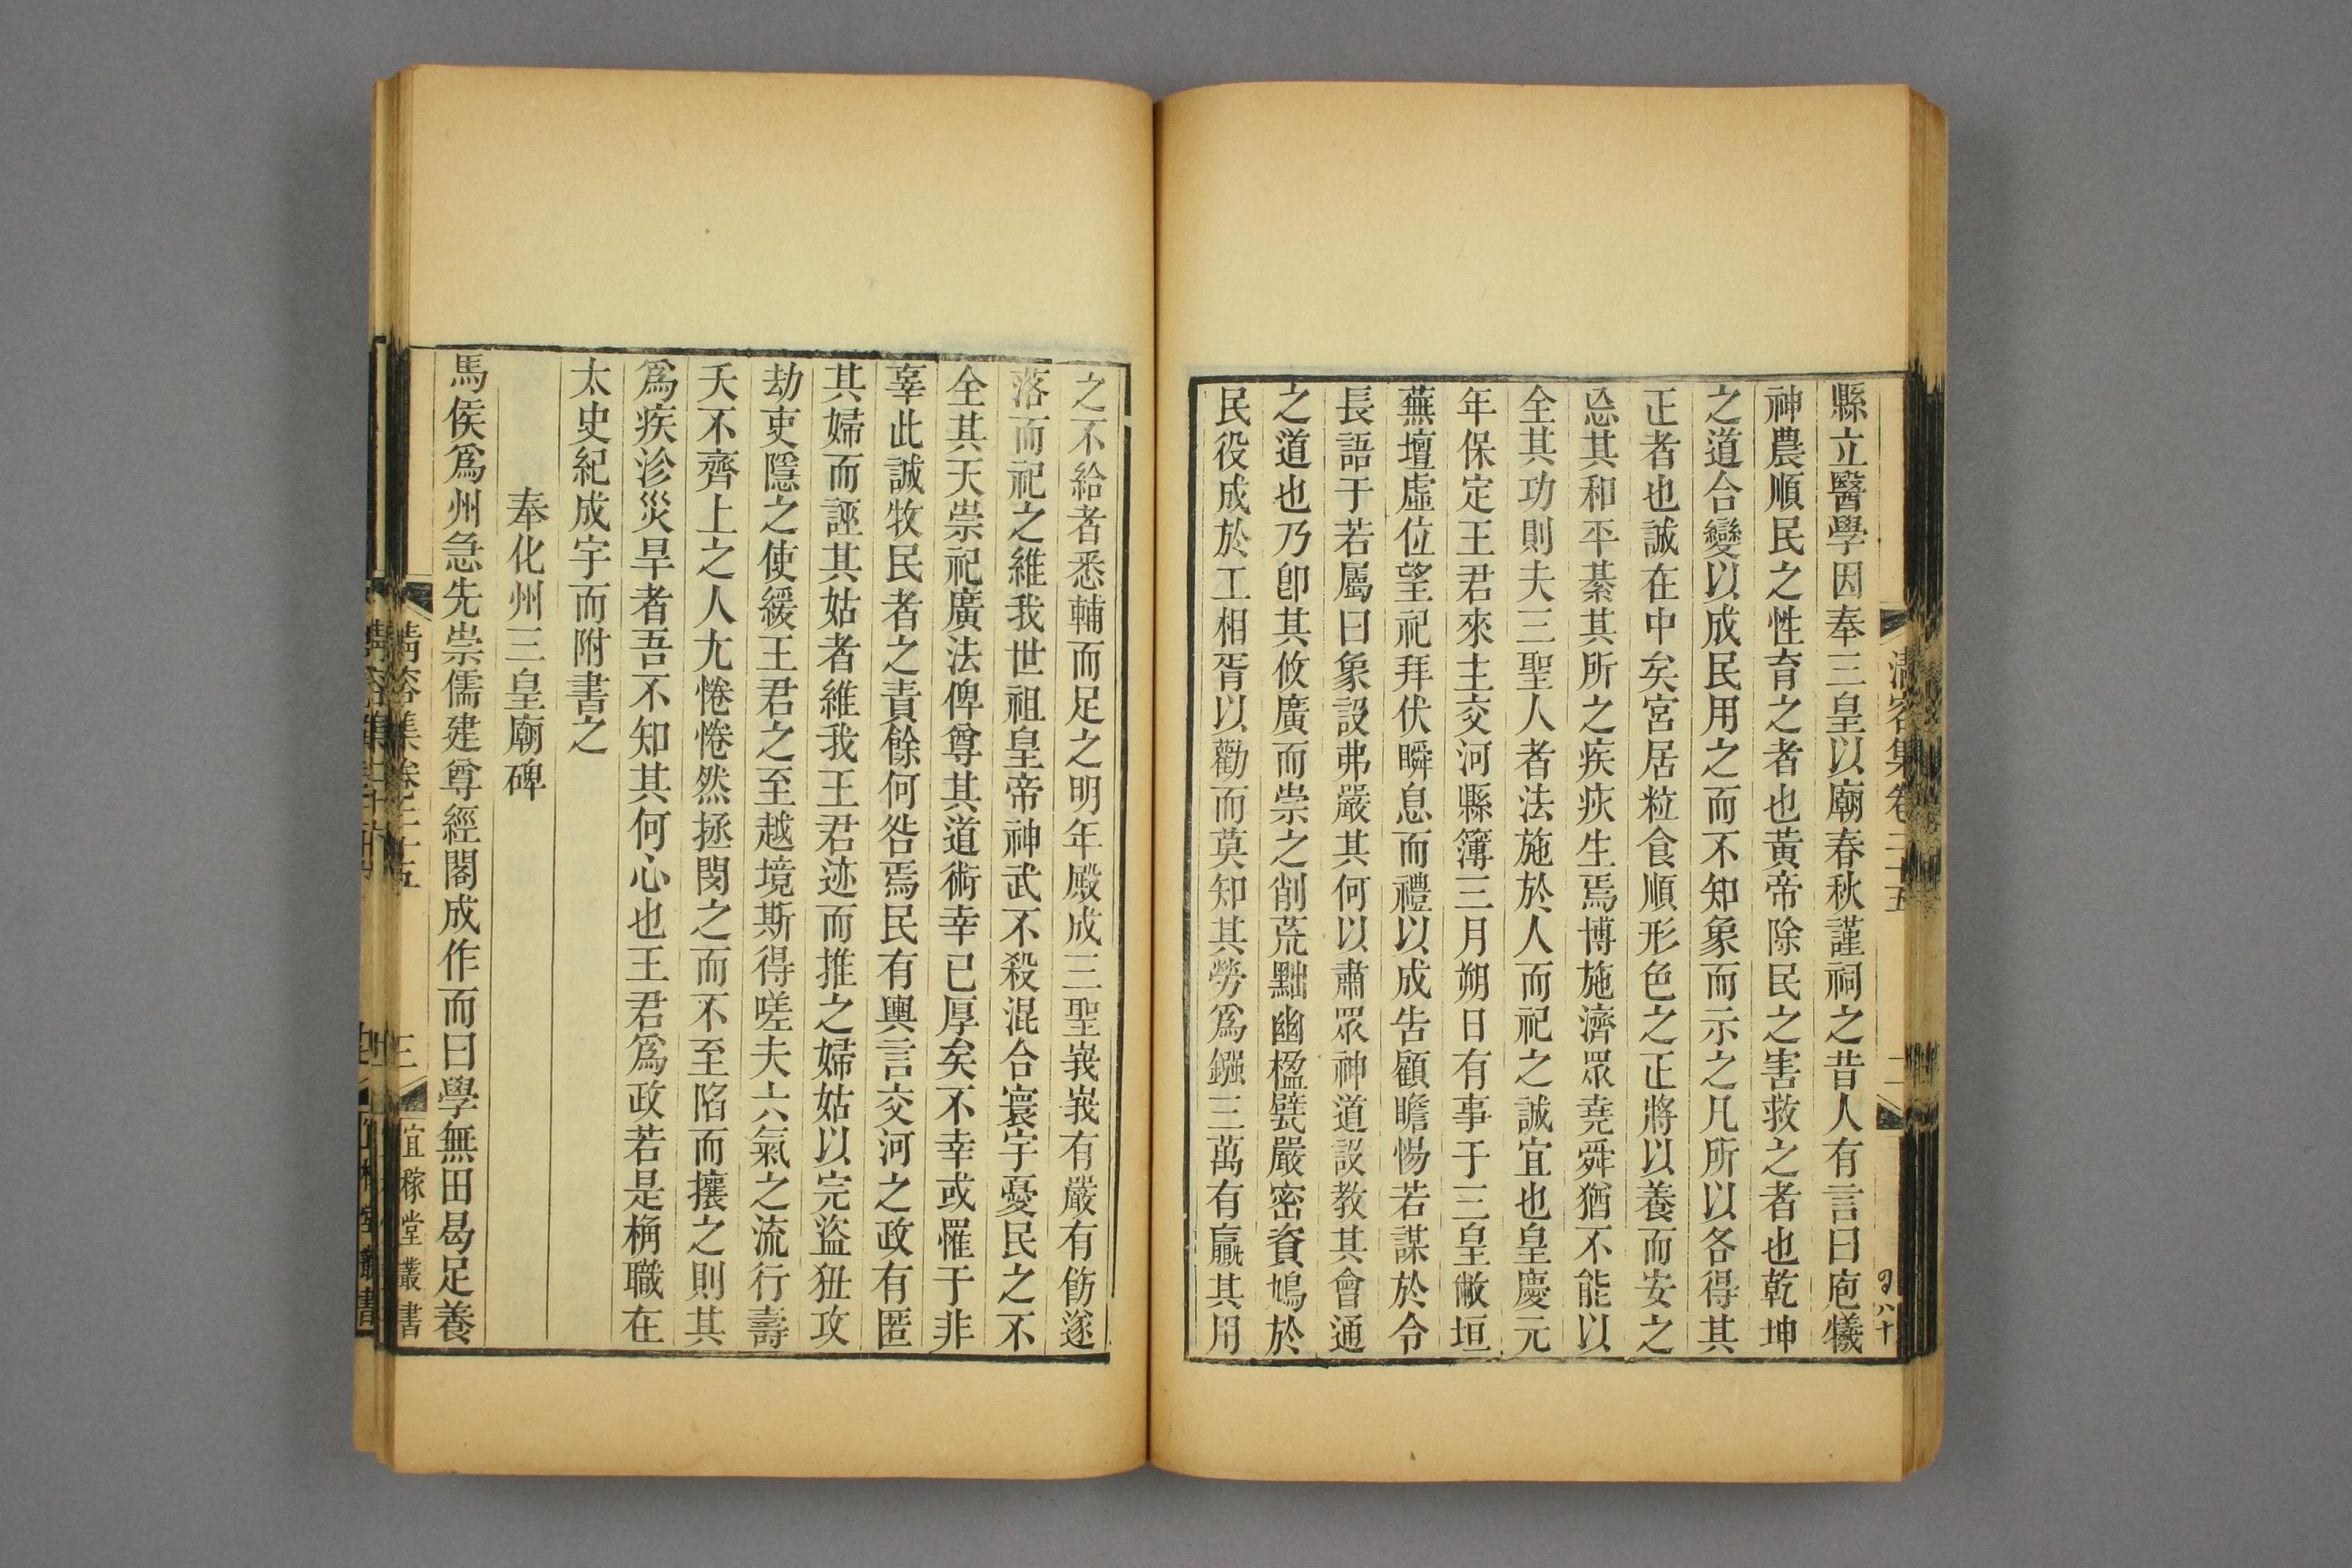 縣立醫學因奉三皇以廟春秋謹祠之昔人有言曰庖犧
神農順民之性育之者也黃帝除民之害救之者也乾坤
之道合變以成民用之而不知象而示之凡所以各得其
正者也誠在中矣宮居粒食順形色之正將以養而安之
忩其和平綦其所之疾疢生焉博施濟眾堯舜猶不能以
全其功則夫三聖人者法施於人而祀之誠宜也皇慶元
年保定王君來主交河縣簿三月朔日有事于三皇敝垣
蕪壇虛位望祀拜伏瞬息而禮以成告顧瞻惕若謀於令
長語于若屬曰象設弗嚴其何以肅眾神道設教其會通
之道也乃卽其攸廣而崇之削荒黜幽楹甓嚴密資鳩於
民役成於工相胥以勸而莫知其勞爲鏹三萬有贏其用
清容集卷二十五
二
之不給者悉輔而足之明年殿成三聖峩峩有嚴有飭遂
落而祀之維我世祖皇帝神武不殺混合寰宇憂民之不
全其天祟祀廣法俾尊其道術幸已厚矣不幸或罹于非
辜此誠牧民者之責餘何咎焉民有輿言交河之政有匿
其婦而誣其姑者維我王君迹而推之婦姑以完盜狃攻
劫吏隱之使緩王君之至越境斯得嗟夫六氣之流行壽
夭不齊上之人尤惓惓然拯閔之而不至陷而攘之則其
爲疾沴災旱者吾不知其何心也王君爲政若是稱職在
太史紀成宇而附書之
奉化州三皇廟碑
馬侯爲州急先崇儒建尊經閣成作而曰學無田曷足養
清容集卷二十五
三
宜稼堂叢書